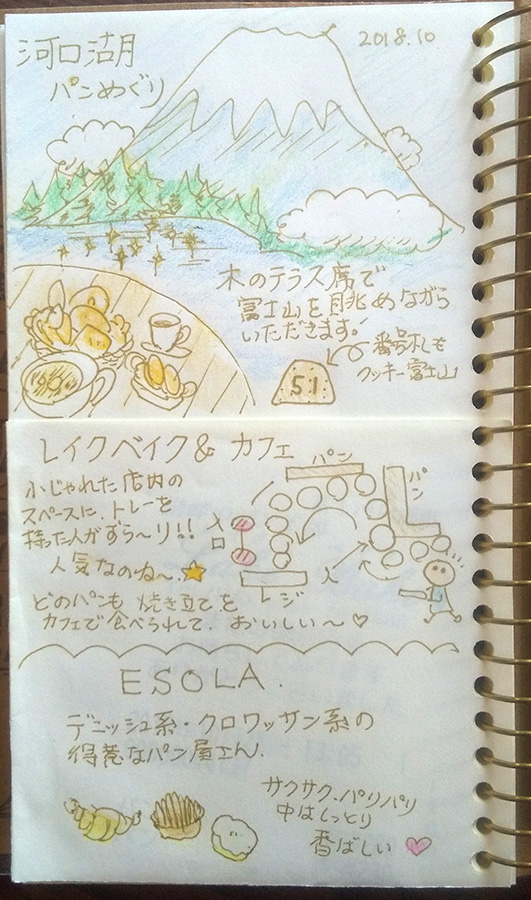 河口湖
パンめぐり
2018.10.
木のテラス席で
富士山を眺めながら
いただきます!
番号札も
クッキー富士山
51
レイクベイク& カフェ
小じゃれた店内の
スペースに、トレーを
持った人がずら〜り!!
人気なのね〜
どのパンも 焼き立てを
カフェで食べられて、おいしい〜♡
パン
パン
入口
レジ
ESOLA.
デニッシュ系・クロワッサン系の
得意なパン屋さん。
サクサク、パリパリ
中はしっとり
香ばしい